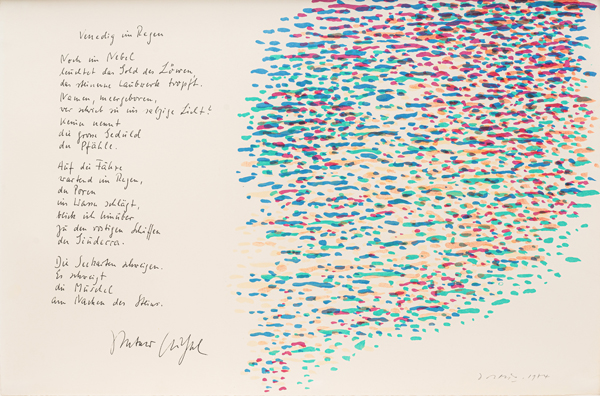 Venedig im Regen
Noch im Nebel
leuchtet das Gold der Löwen,
das steinerne Laubwerk tropft.
Namen, meergeboren,
wer schrieb sie ins salzige Licht?
Keiner nennt
die grosse Geduld
der Pfähle.
Auf die Fähre
wartend im Regen,
der Poren
ins Wasser schlägt,
blick ich hinüber
zu den rostigen Schiffen
der Giudecca.
Die Seekarten schweigen.
Es schweigt
die Muschel
am Nacken
1984